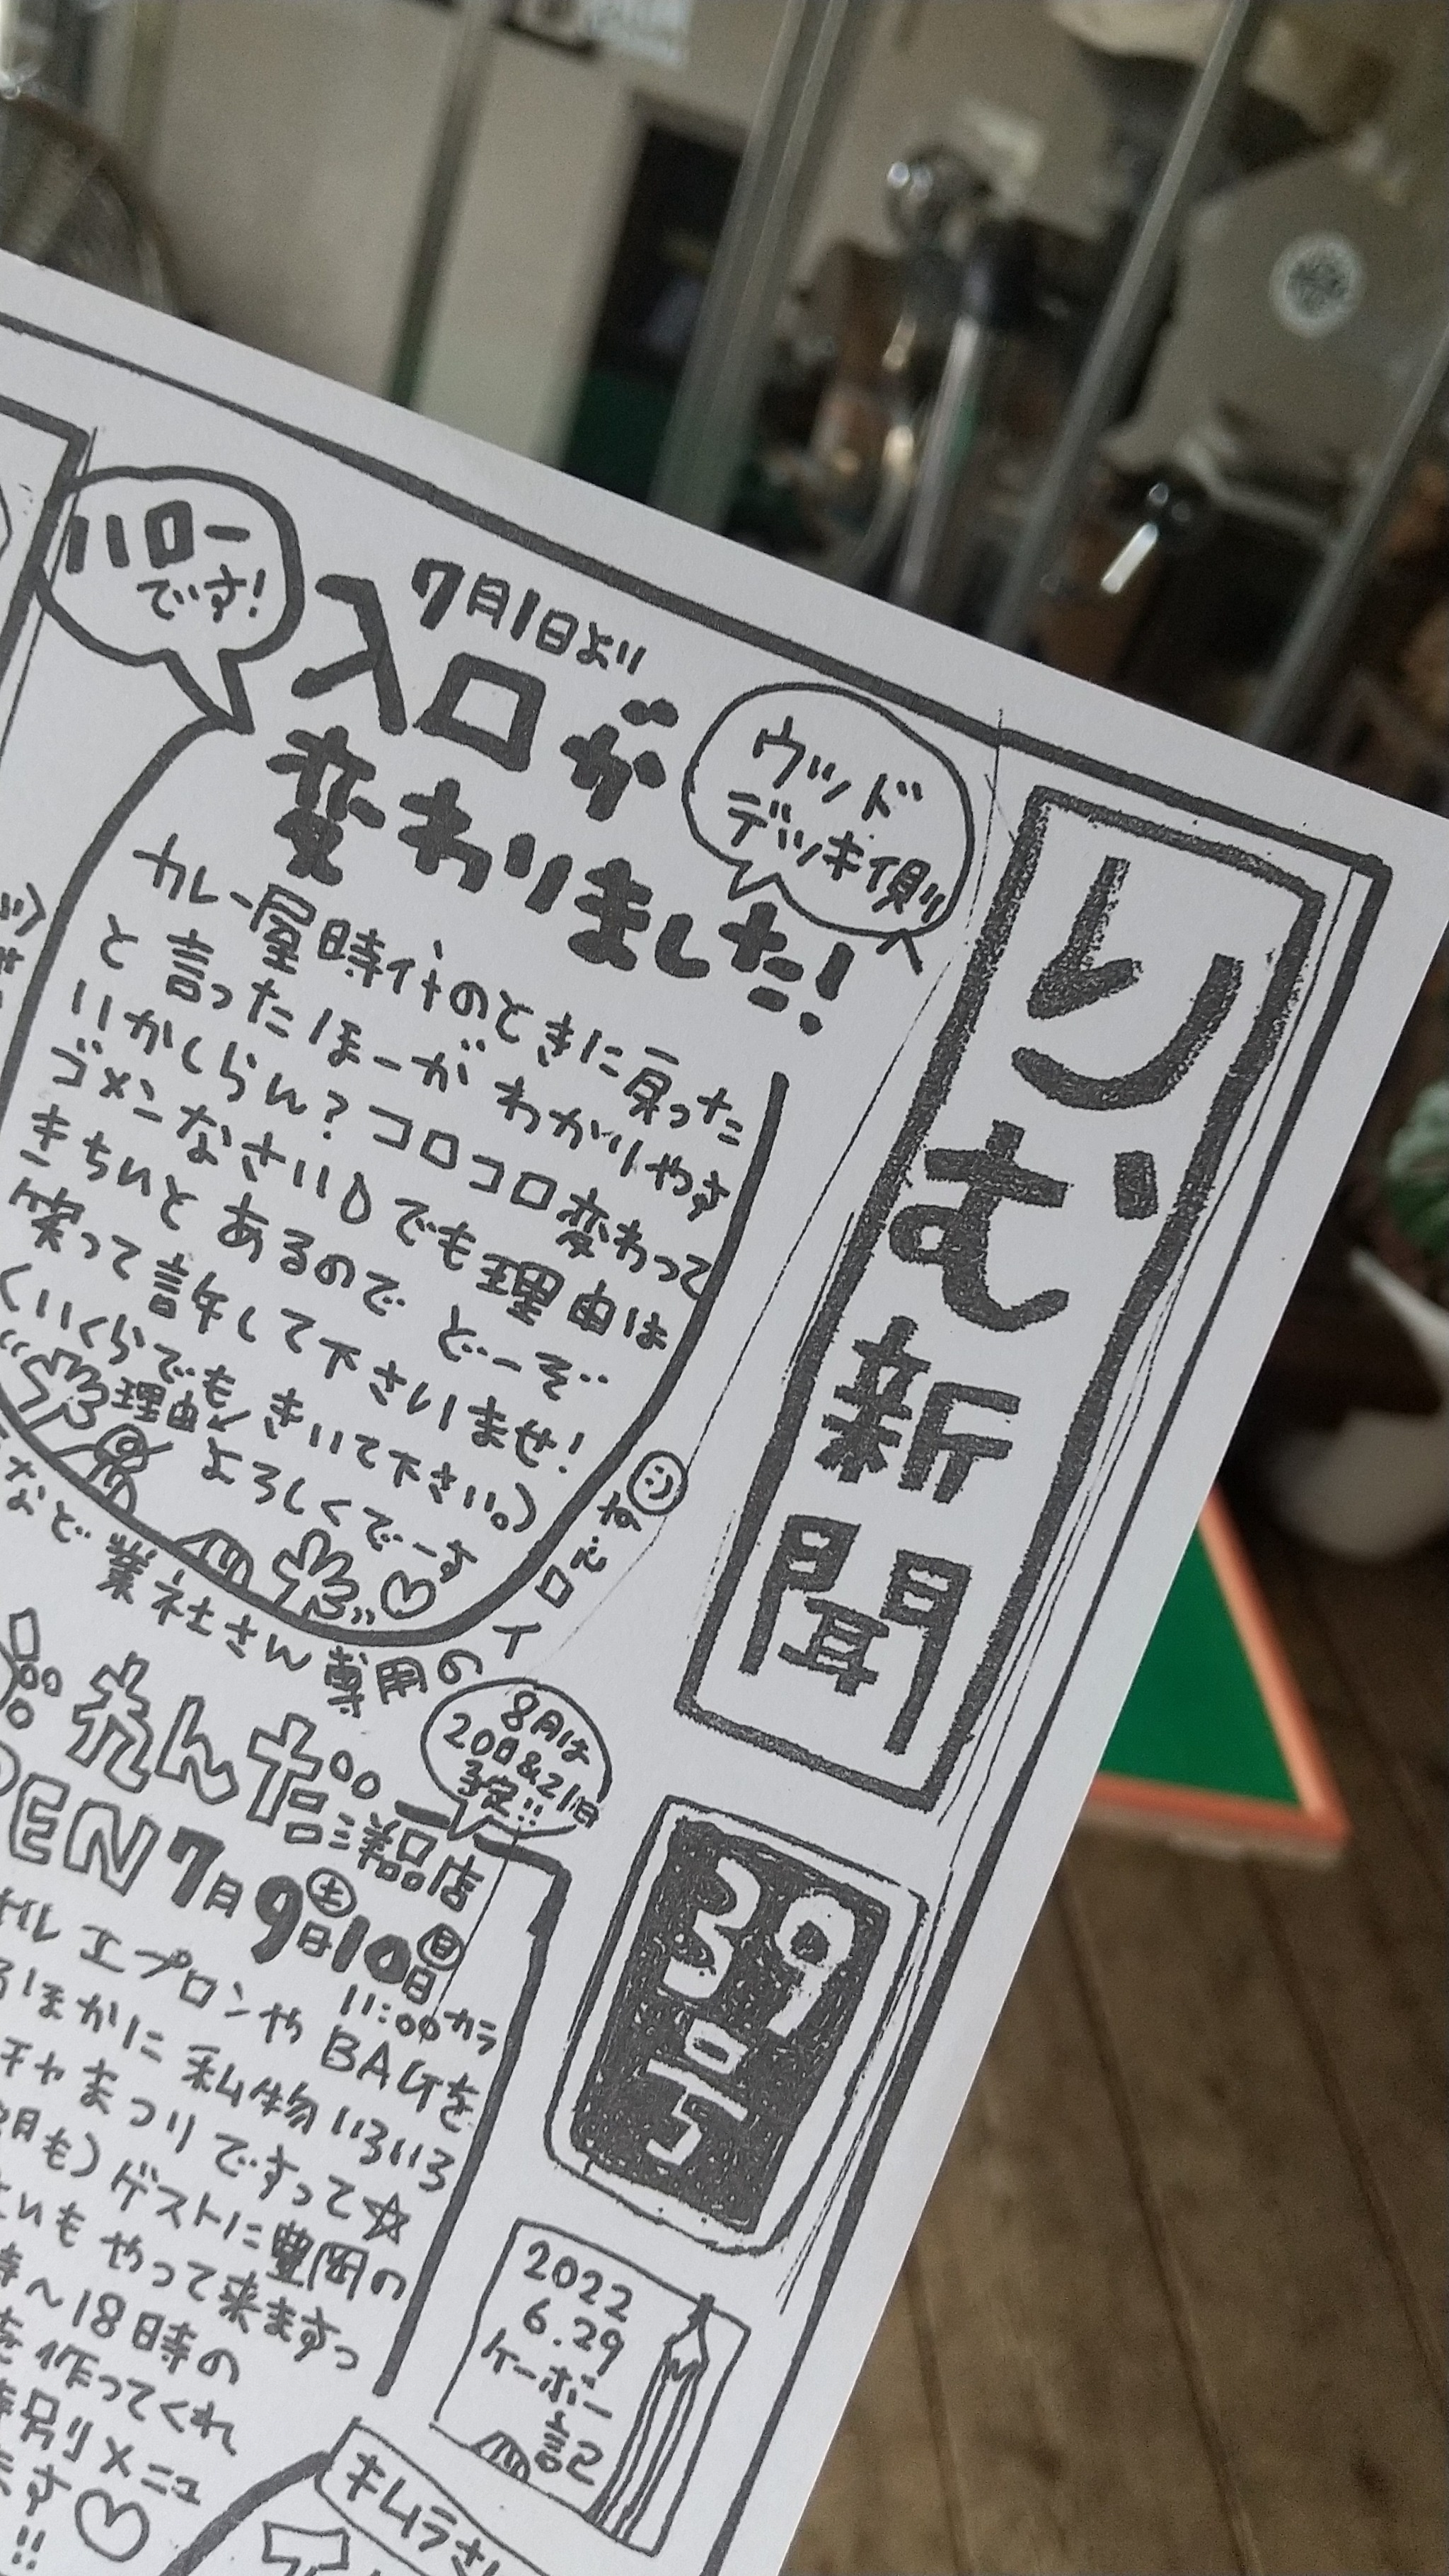 りむ新聞
39号
2022
6.29
ケーボー
記
ハロー
です!
7月1日より
入口が
変わりました!
ウッド
デッキ側
へ
カレー屋時代のときに戻った
と言ったほーがわかりやす
いかしらん?コロコロ変わって
ゴメンなさい。でも理由は
きちんとあるので どーぞ
笑って許して下さいませ!
(いくらでも
理由 きいて下さい。)
よろしくでーす
など業社さん専用の
イロです
8月は
20日&21日
予定!!
OPEN 7月9日土10日日
11:00カラ
エプロンやBAGを
ほかに私物いろいろ
チャまつりですって☆
月も)ゲストに豊岡の
もやって来ますっ
時〜18時の
を作ってくれ
特別メニュ
ます
!!
キムラさ